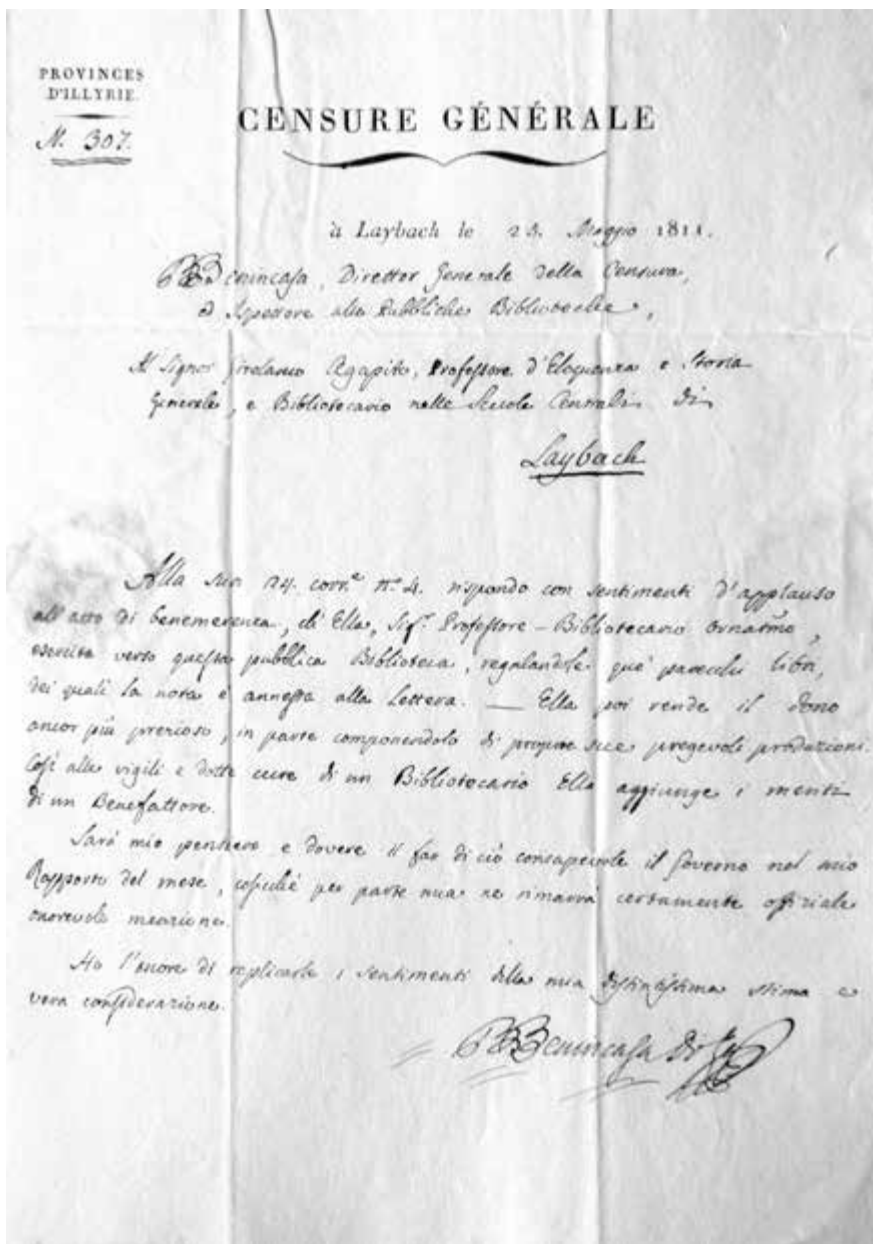 PROVINCES
D'ILLYRIE.
N. 307.
CENSURE GÉNÉRALE
à Laybach le 25. Maggio 1811.
Benincasa, Director Generale della Censura,
ed Ispettore alle Pubbliche Biblioteche,
Al Signor Girolamo Agapito, Professore d'Eloquenza e Storia
Generale, e Bibliotecario nelle Scuole Centrali di
Laybach
Alla sua 24. corr.e n.o 4. rispondo con sentimenti d'applauso
all'atto di benemerenza, ch'Ella, Sig.r Professore-Bibliotecario Ornatmo,
esercita verso questa pubblica Biblioteca, regalandole que' parecchi libri,
dei quali la nota è annessa alla Lettera. — Ella poi rende il dono
ancor più prezioso, in parte componendolo di proprie sue pregevoli produzioni.
Così alle vigili e dotte cure di un Bibliotecario Ella aggiunge i meriti
di un Benefattore.
Sarà mio pensiero e dovere il far di ciò consapevole il Governo nel mio
Rapporto del mese, cosicché per parte mia ne rimarrà certamente offiziale
onorevole menzione.
Ho l'onore di replicarle i sentimenti della mia distintissima stima e
vera considerazione.
Benincasa